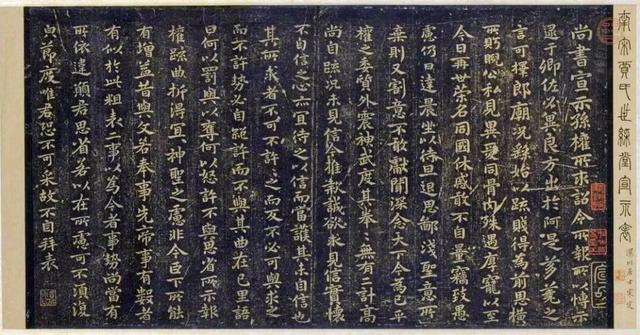 南宋賈氏世綵堂宣示表
尚書宣示孫權所求詔令所報所以博示
逮于卿佐必冀良方出於阿是芻蕘之
言可擇郎廟況繇始以疏賤得為前恩橫
所盻睨公私見異愛同骨肉殊遇厚寵以至
今日再世榮名同國休慼敢不自量竊致愚
慮仍日達晨坐以待旦退思鄙淺聖意所
棄則又割意不敢獻聞深念天下今為已平
權之委質外震神武度其拳拳無有二計高
尚自疏況未見信今推款誠欲求見信實懷
不自信之心亦宜待之以信而當護其未自信也
其所求者不可不許許之而反不必可與求之
而不許勢必自絕許而不與其曲在己里語
曰何以罰與以奪何以怒許不與思省所示報
權疏曲折得宜神聖之慮非今臣下所能
有增益昔與文若奉事先帝事有數者
有似於此粗表二事以為今者事勢尚當有
所依違願君思省若以在所慮可不須復
皃節度唯君恐不可采故不自拜表